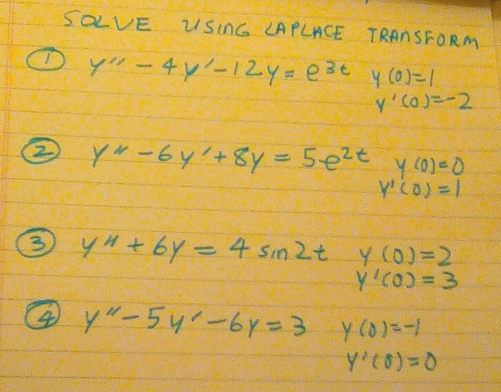 SOLVE USING LAPLACE TRANSFORM
① y'' - 4y' - 12y = e^3t y(0)=1
y'(0)=-2
② y'' - 6y' + 8y = 5e^2t y(0)=0
y'(0)=1
③ y'' + 6y = 4 sin 2t y(0)=2
y'(0)=3
④ y'' - 5y' - 6y = 3 y(0)=-1
y'(0)=0